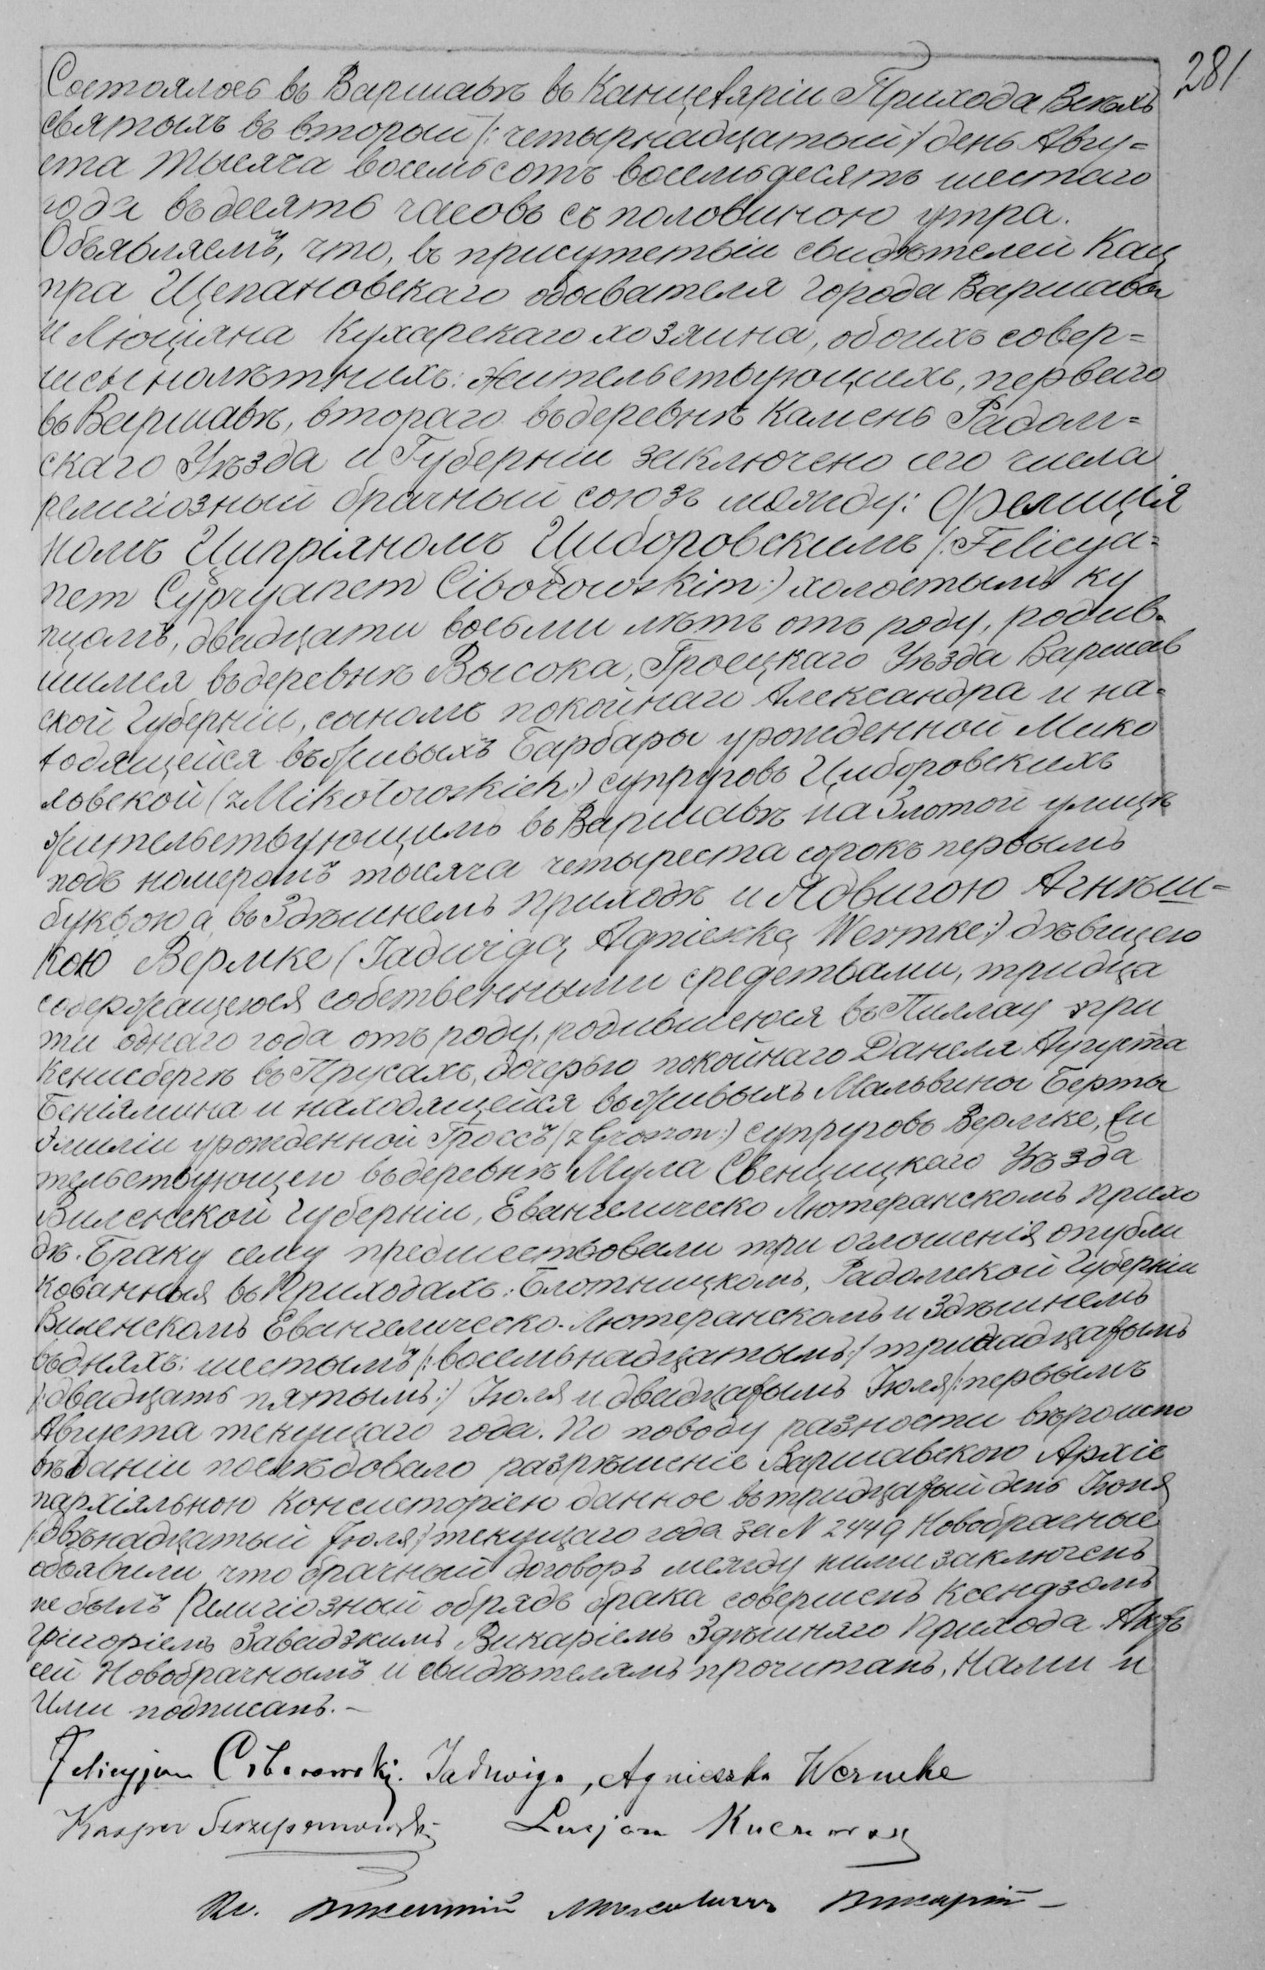 281
Состоялось въ Варшавѣ въ Канцеляріи Прихода Всѣхъ
святыхъ въ второй /: четырнадцатый :/ день Авгу=
ста тысяча восемьсотъ восемьдесятъ шестаго
года въ десять часовъ съ половиною утра.
Объявляемъ, что, въ присутствіи свидѣтелей Кац
пра Щепановскаго обывателя города Варшавы
и Люціяна Кухарскаго хозяина, обоихъ совер=
шеннолѣтнихъ: жительствующихъ, перваго
въ Варшавѣ, втораго въ деревнѣ Камень Радом=
скаго Уѣзда и Губерніи заключено сего числа
религіозный брачный союзъ между: Фелиція
номъ Ципріяномъ Циборовскимъ /: Felicya=
nem Cypryanem Ciborowskim :/ холостымъ ку
пцомъ, двадцати восьми лѣтъ отъ роду, родив=
шимся въ деревнѣ Высока, Гроецкаго Уѣзда Варшав
ской Губерніи, сыномъ покойнаго Александра и на=
ходящейся въ живыхъ Барбары урожденной Мико
ловской (z Mikołowskich :) супруговъ Циборовскихъ
жительствующимъ въ Варшавѣ на Злотой улицѣ
подъ номеромъ тысяча четыреста сорокъ первымъ
буквою а, въ Здѣшнемъ приходѣ и Ядвигою Агнѣш=
кою Вермке (Jadwigą Agnieszką Wermke :) дѣвицею
содержащеюся собственными средствами, тридца
ти однаго года отъ роду, родившеюся въ Пиллау при
Кенигсбергѣ въ Прусахъ, дочерью покойнаго Данеля Августа
Беніямина и находящейся въ живыхъ Мальвины Берты
Эмиліи урожденной Гроссъ (z Grossow :) супруговъ Вермке, жи
тельствующею въ деревнѣ Мула Свенцицкаго Уѣзда
Виленской Губерніи, Евангелическо Лютеранскомъ прихо
дѣ. Браку сему предшествовали три оглошенія опубли
кованныя въ Приходахъ: Блотницкомъ, Радомской Губерніи
Виленскомъ Евангелическо-Лютеранскомъ и Здѣшнемъ
въ дняхъ: шестымъ /: восемьнадцатымъ :/ тринадцатымъ
/: двадцать пятымъ :/ Іюля и двадцатымъ Іюля /: первымъ
Августа текущаго года. По поводу разности вѣроиспо
вѣданіи послѣдовало разрѣшеніе Варшавскою Архіе
пархіяльною Консисторіею данное въ тридцатый день Іюня
/: двѣнадцатый Іюля :/ текущаго года за N 2449 Новобрачные
объявили что брачный договоръ между ними заключенъ
не былъ Религіозный обрядъ брака совершенъ Ксендзомъ
Григоріемъ Завадзкимъ Викаріемъ Здѣшняго Прихода Актъ
сей Новобрачнымъ и свидѣтелямъ прочитанъ, Нами и
Ими подписанъ. –
Felicyjan Ciborowski. Jadwiga, Agnieszka Wermke
Kasper Szczepanowski Lucjan Kucharski
Кс. Викарій –